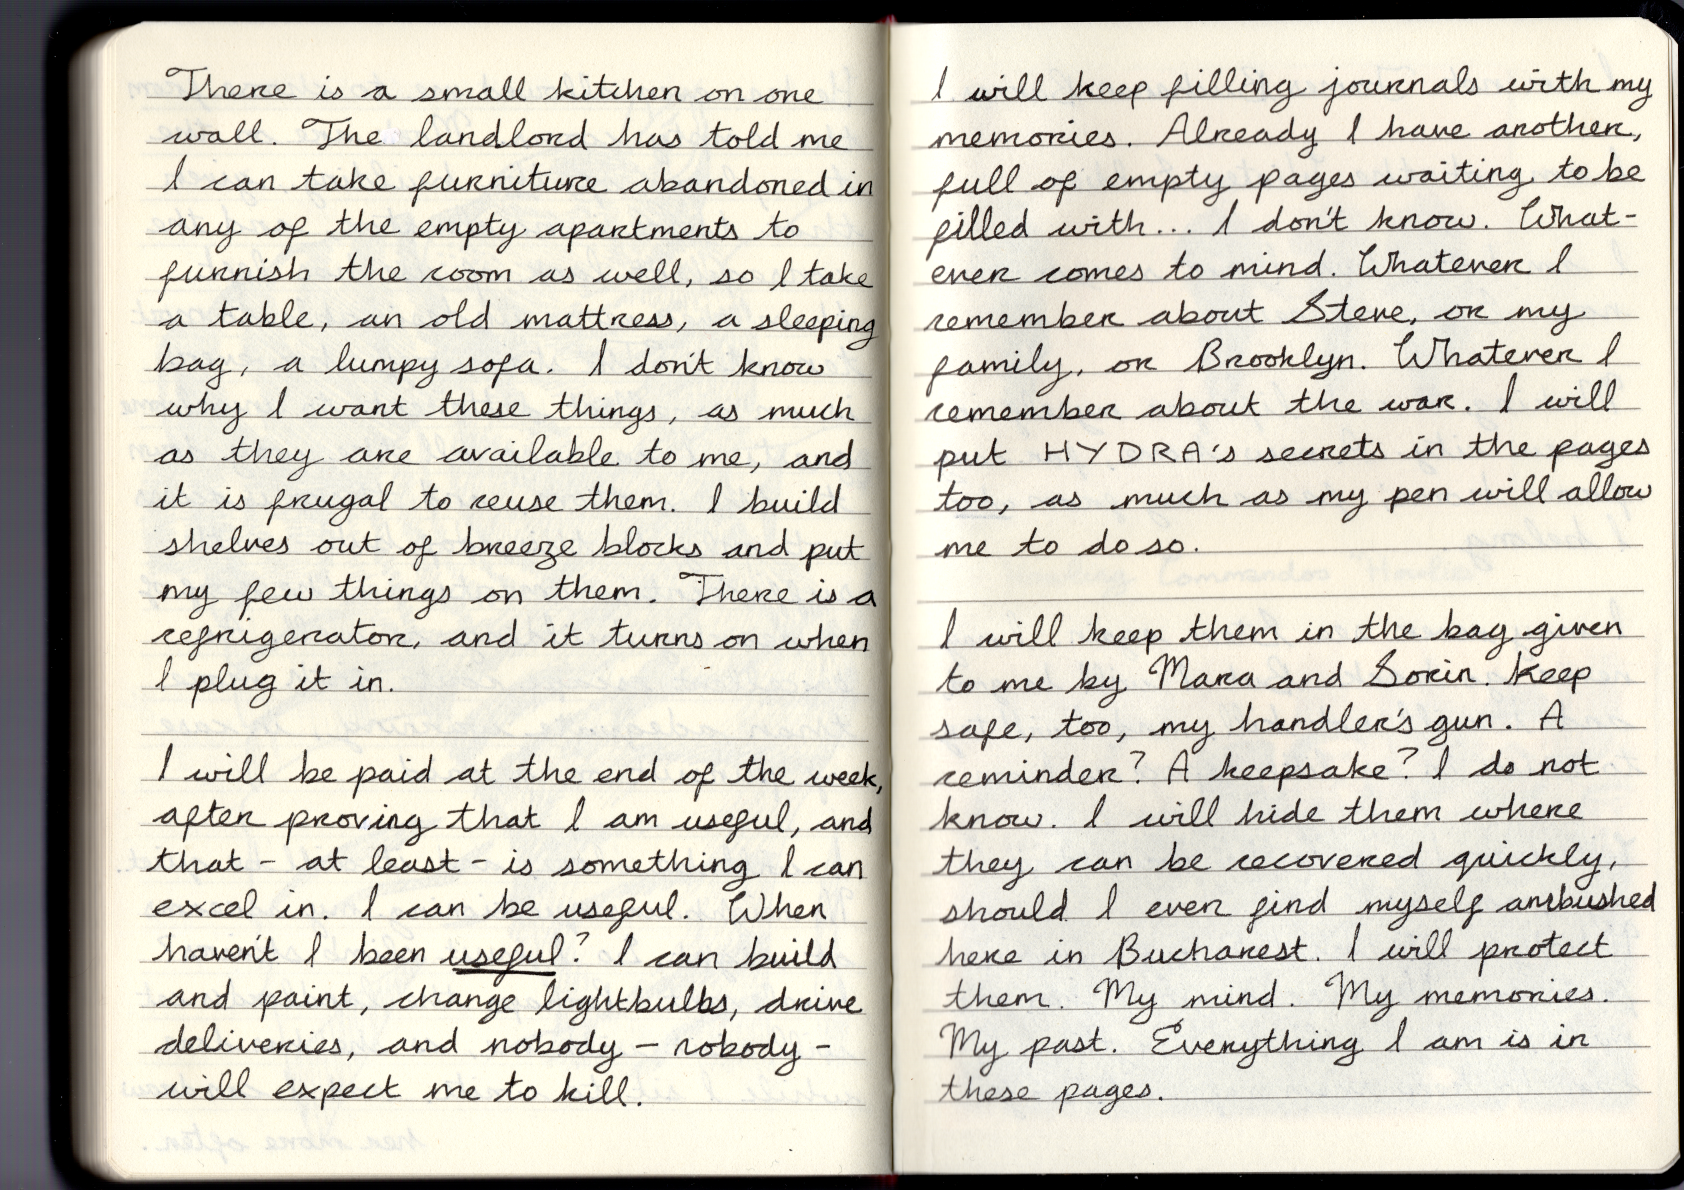 There is a small kitchen on one
wall. The landlord has told me
I can take furniture abandoned in
any of the empty apartments to
furnish the room as well, so I take
a table, an old mattress, a sleeping
bag, a lumpy sofa. I don't know
why I want these things, as much
as they are available to me, and
it is frugal to reuse them. I build
shelves out of breeze blocks and put
my few things on them. There is a
refrigerator, and it turns on when
I plug it in.
I will be paid at the end of the week,
after proving that I am useful, and
that - at least - is something I can
excel in. I can be useful. When
haven't I been useful? I can build
and paint, change lightbulbs, drive
deliveries, and nobody - nobody -
will expect me to kill.
I will keep filling journals with my
memories. Already I have another,
full of empty pages waiting to be
filled with... I don't know. What-
ever comes to mind. Whatever I
remember about Steve, or my
family, or Brooklyn. Whatever I
remember about the war. I will
put HYDRA's secrets in the pages
too, as much as my pen will allow
me to do so.
I will keep them in the bag given
to me by Mara and Sorin. Keep
safe, too, my handler's gun. A
reminder? A keepsake? I do not
know. I will hide them where
they can be recovered quickly,
should I ever find myself ambushed
here in Bucharest. I will protect
them. My mind. My memories.
My past. Everything I am is in
these pages.